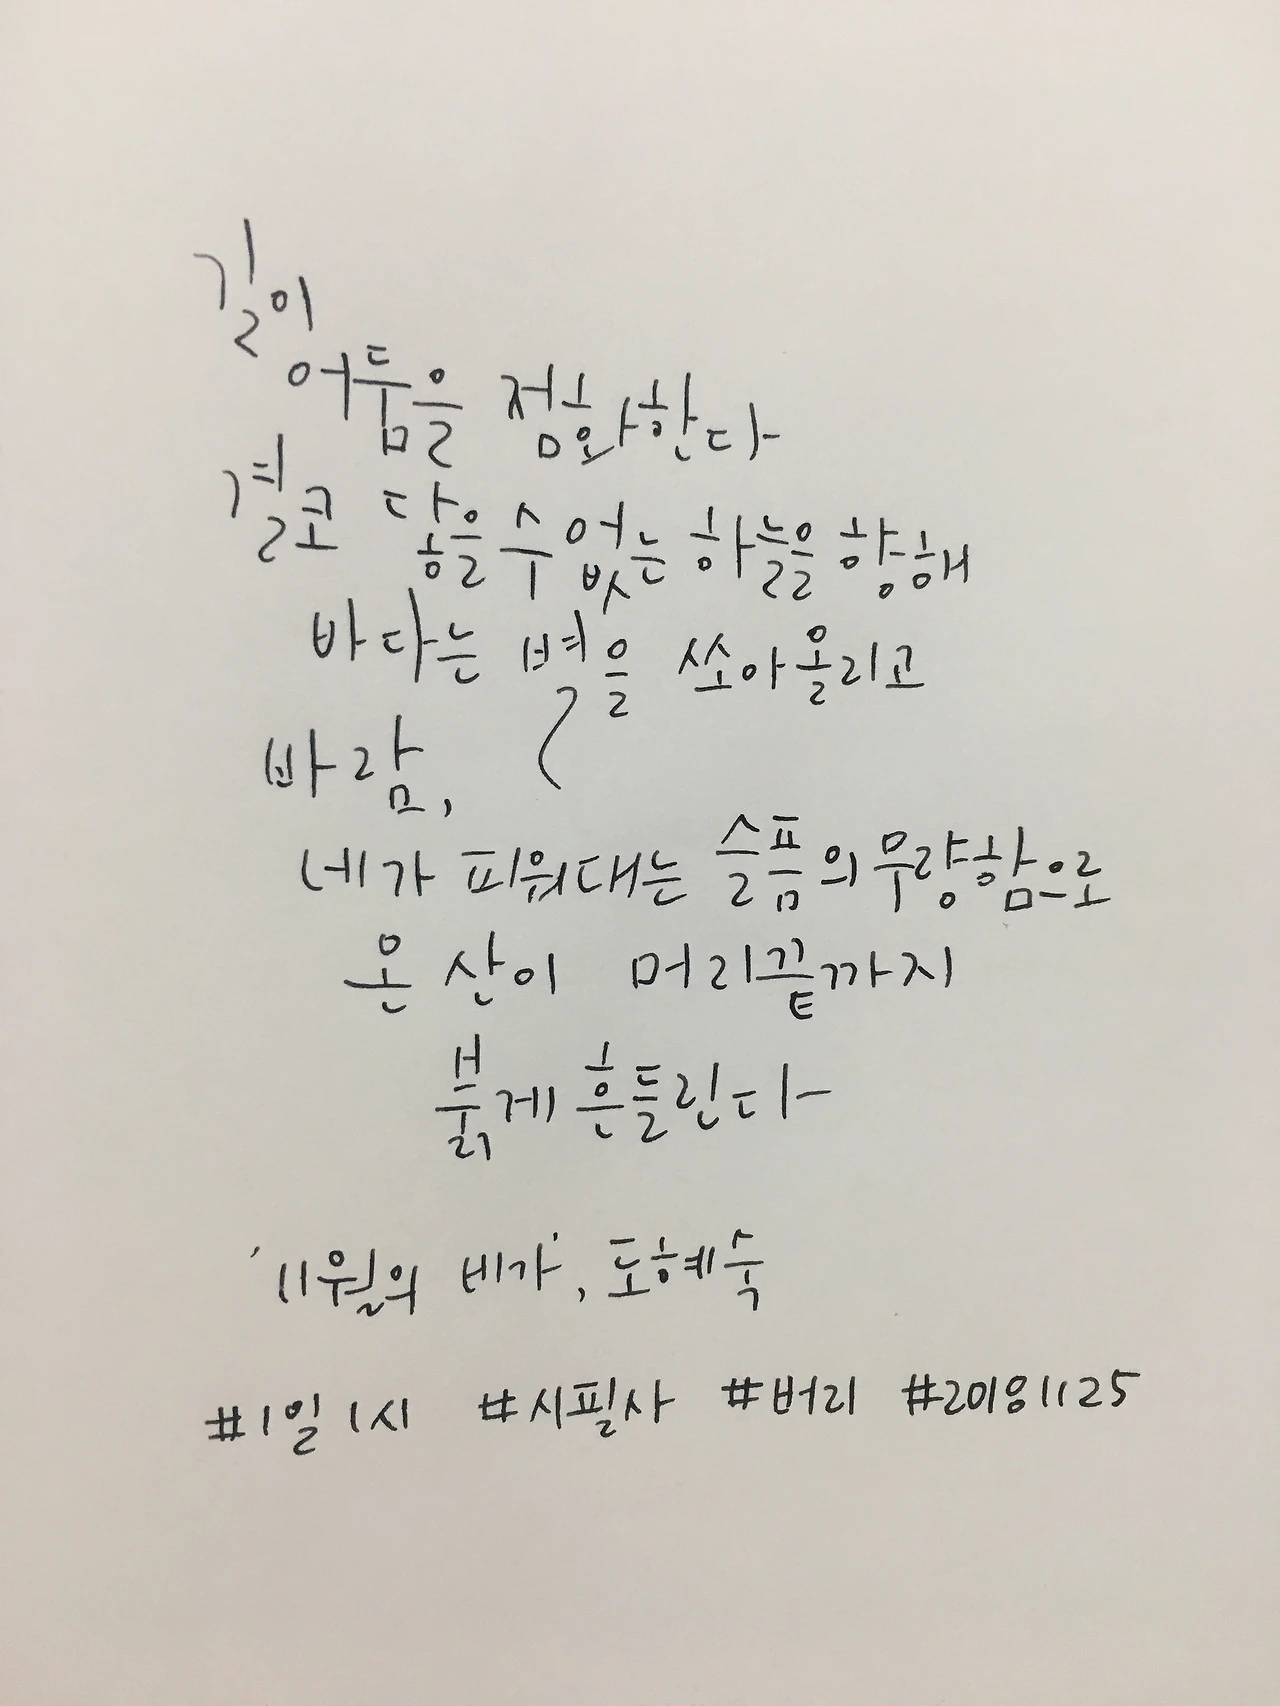 길이
어둠을 점화한다
결코 닿을 수 없는 하늘을 향해
바다는 별을 쏘아올리고
바람,
네가 피워대는 슬픔의 무량함으로
온 산이 머리끝까지
붉게 흔들린다
'11월의 비가', 도혜숙
#1일1시 #시필사 #버리 #20181125